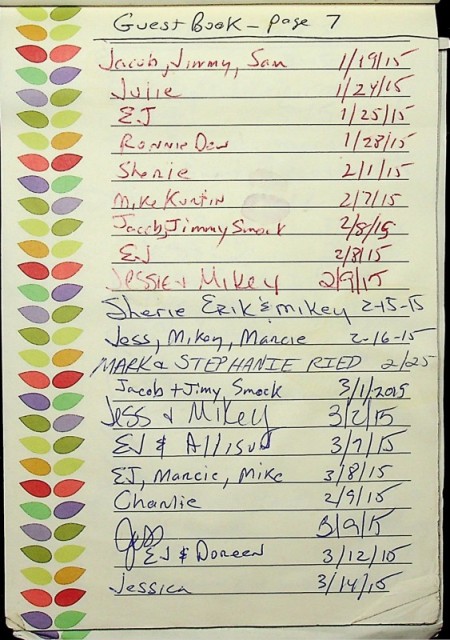 Guest Book - page 7
Jacob, Jimmy, Sam 1/19/15
Julie 1/24/15
EJ 1/25/15
Ronnie Dow 1/28/15
Sherie 2/1/15
Mike Kurtin 2/7/15
Jacob, Jimmy Smock 2/8/15
EJ 2/8/15
Jessie + Mikey 2/9/15
Sherie Erik & mikey 2-15-15
Jess, Mikey, Marcie 2-16-15
MARK & STEPHANIE RIED 2/25
Jacob + Jimy Smock 3/1/2015
Jess & Mikey 3/2/15
EJ & Allison 3/7/15
EJ, Marcie, Mike 3/8/15
Charlie 2/9/15
Jeff 3/9/15
EJ & Doreen 3/12/15
Jessica 3/14/15